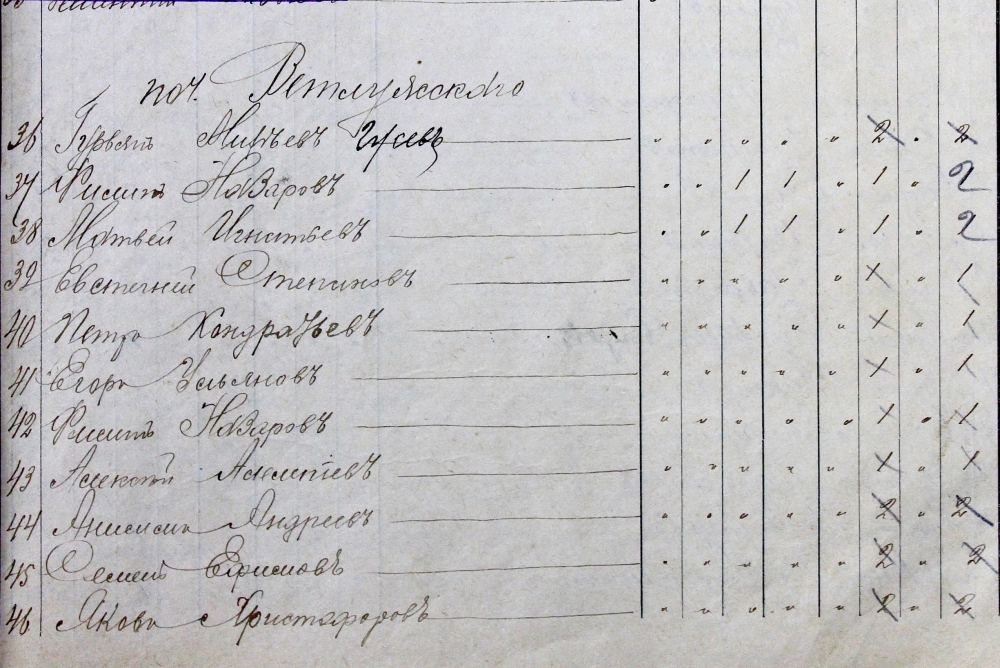 поч. Ветлужскаго
36 Гурьянъ Гусевъ " " " " " 2 " 2
37 Филипъ Назаровъ " " 1 1 " 1 " 2
38 Матвей Игнатьевъ " " 1 1 " 1 " 2
39 Евстигней Степановъ " " " " " 1 " 1
40 Петръ Кондратьевъ " " " " " 1 " 1
41 Егоръ Ульяновъ " " " " " 1 " 1
42 Филипъ Назаровъ " " " " " 1 " 1
43 Алексей " " " " " 1 " 1
44 Андреевъ " " " " " 2 " 2
45 Семенъ Ефимовъ " " " " " 2 " 2
46 Яковъ Христофоровъ " " " " " 2 " 2